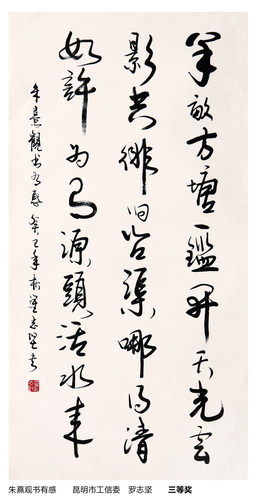 半畝方塘一鑑開天光雲
影共徘徊问渠哪得清
如許为有源頭活水来
朱熹觀书有感 癸巳年秋罗志坚书
朱熹观书有感 昆明市工信委 罗志坚 三等奖